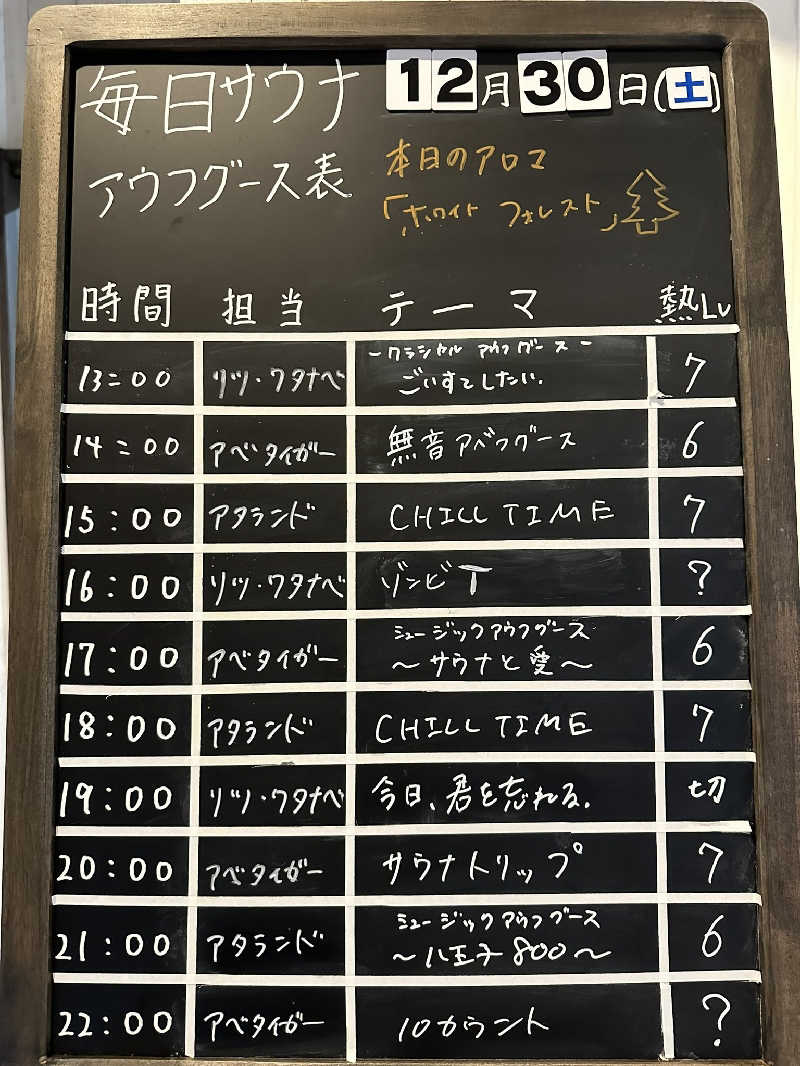 毎日サウナ 12月30日(土)
アウフグース表
本日のアロマ
「ホワイト フォレスト」
時間 担当 テーマ 熱Lv
13:00 リツ・ワタナベ -クラシカル アウフグース- ごいすてしたい. 7
14:00 アベタイガー 無音アベフグース 6
15:00 アタランド CHILL TIME 7
16:00 リツ・ワタナベ ゾンビT ?
17:00 アベタイガー ミュージックアウフグース 〜サウナと愛〜 6
18:00 アタランド CHILL TIME 7
19:00 リツ・ワタナベ 今日、君を忘れる. 切
20:00 アベタイガー サウナトリップ 7
21:00 アタランド ミュージックアウフグース 〜八王子800〜 6
22:00 アベタイガー 10カウント ?